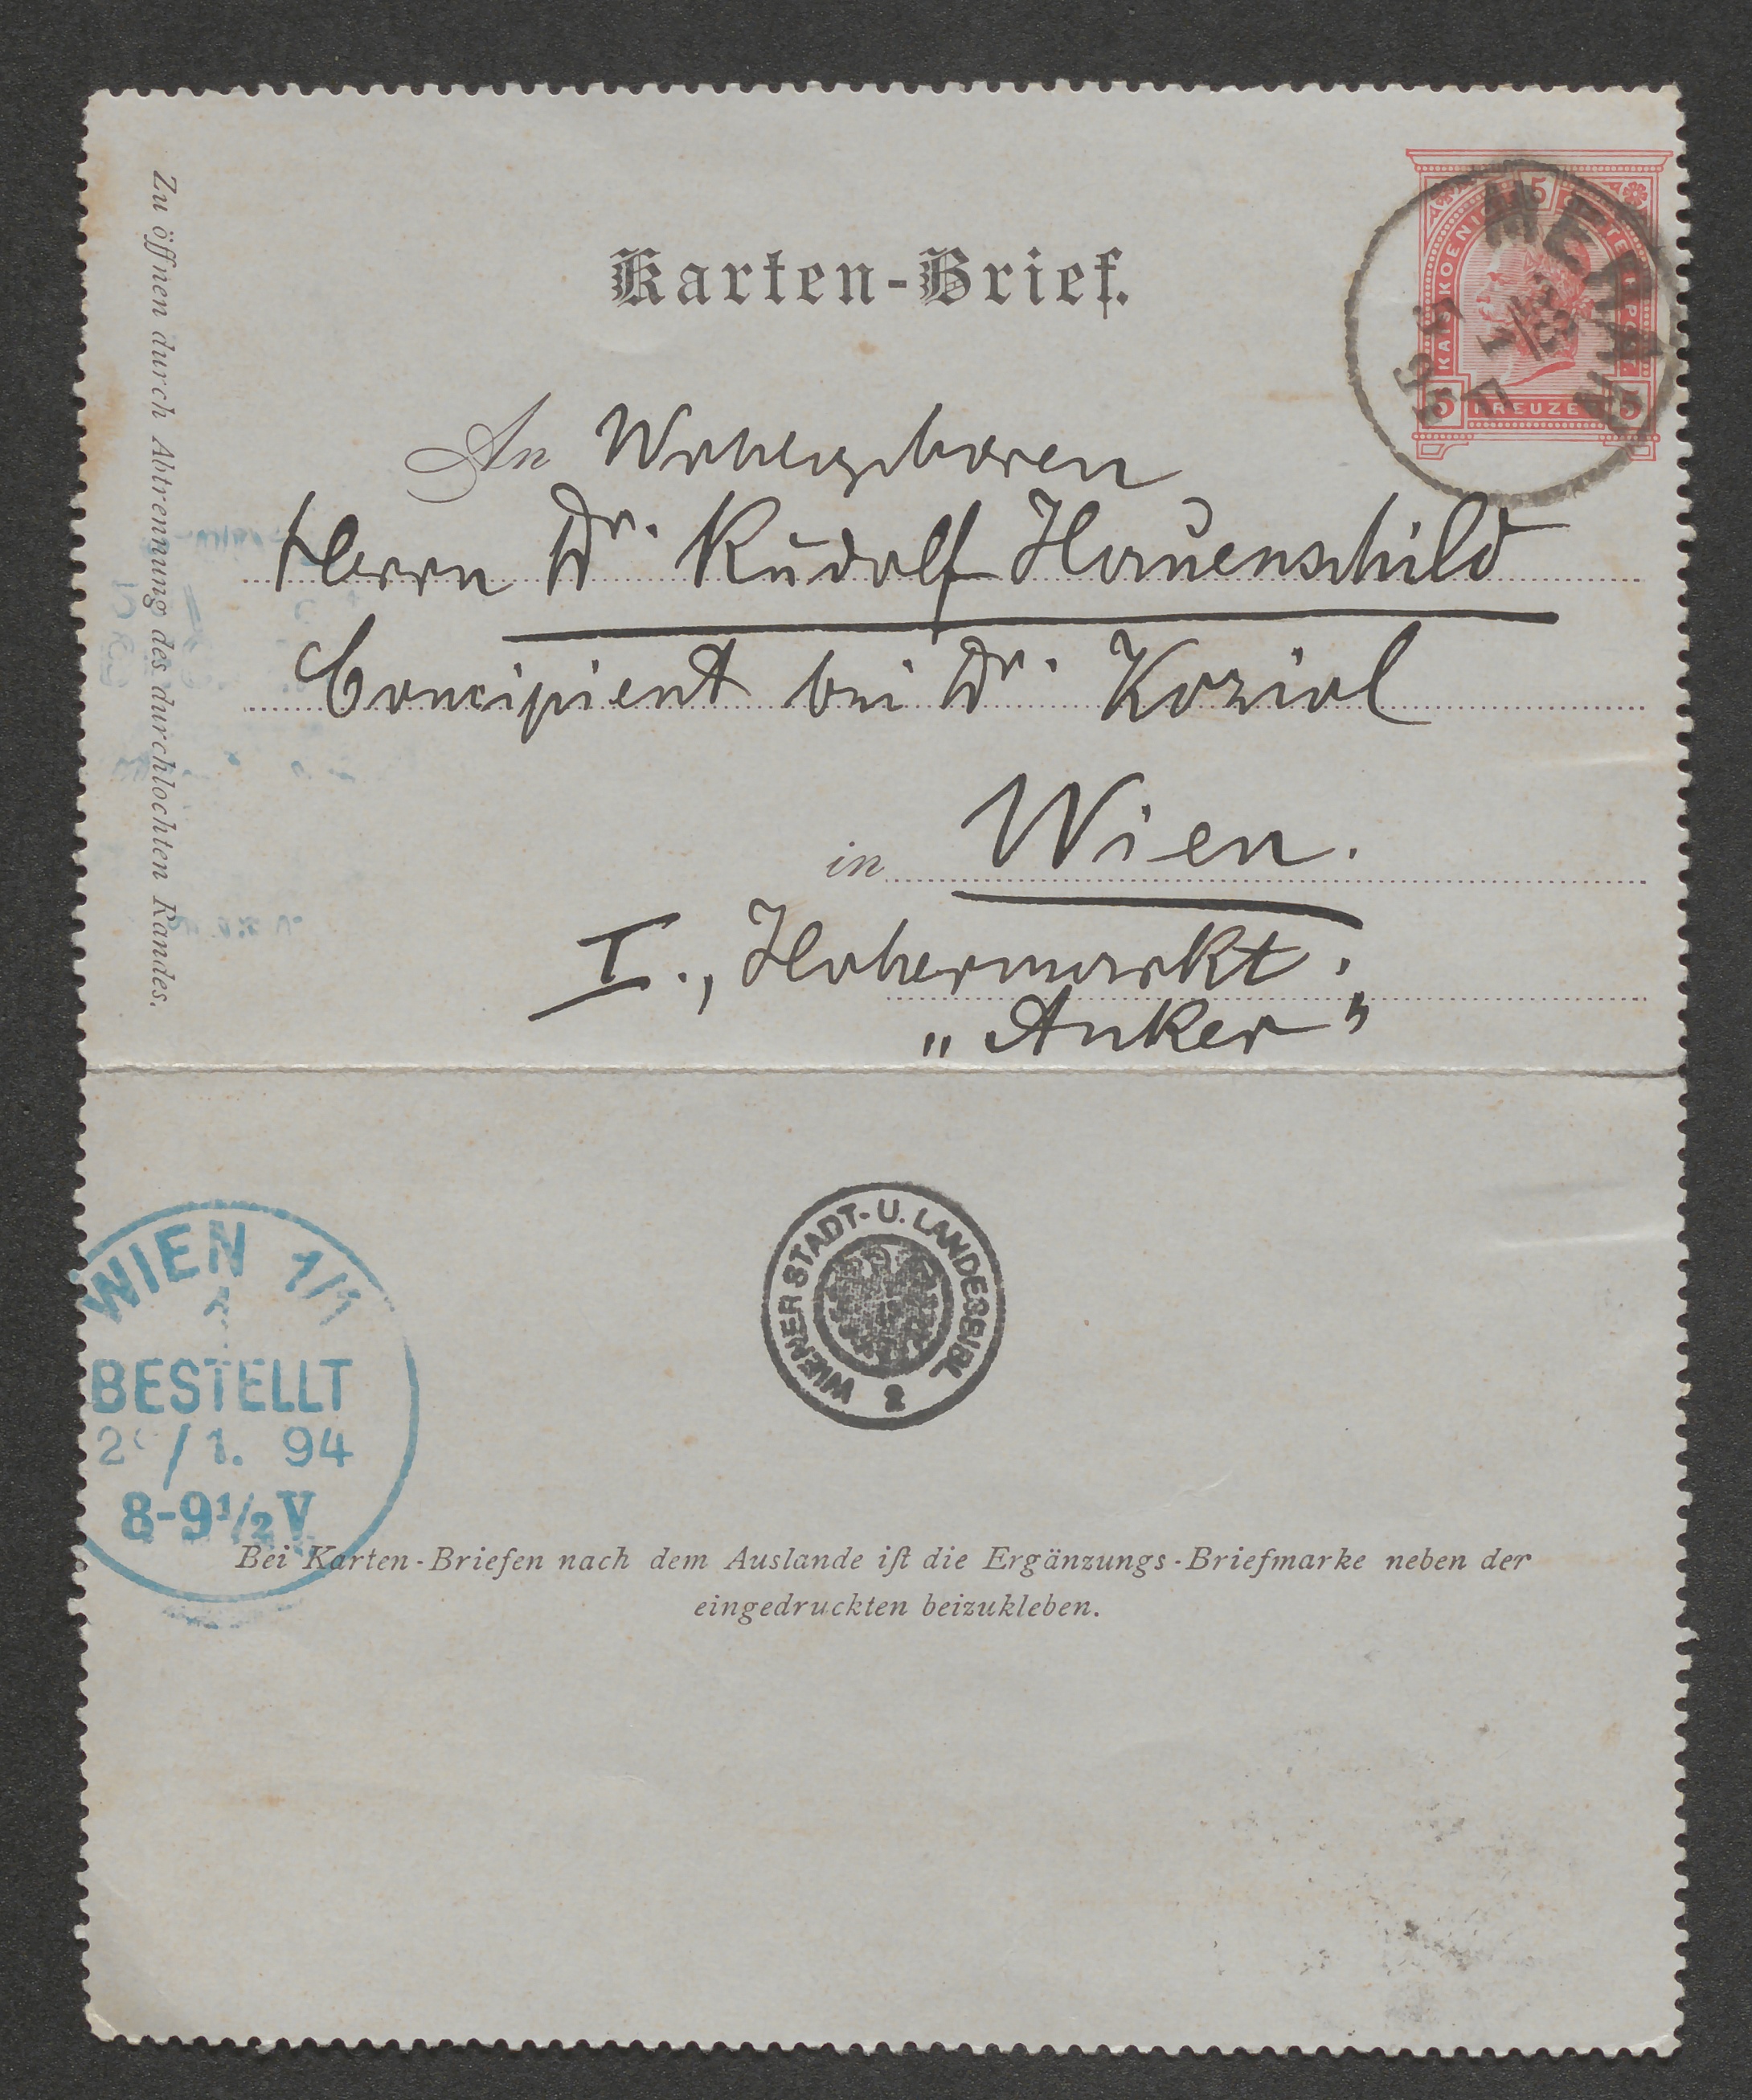 Karten-Brief.
An Wohlgeboren
Herrn Dr. Rudolf Hauenschild
Concipient bei Dr. Koziol
in Wien.
I., Hohermarkt.
„Anker”
Zu öffnen durch Abtrennung des durchlochten Randes.
5
MERAN
KREUZER
WIEN 1/1
BESTELLT
/1. 94
8-9½ V
WIENER STADT- U. LANDESBIBL
Bei Karten-Briefen nach dem Auslande iſt die Ergänzungs-Briefmarke neben der
eingedruckten beizukleben.